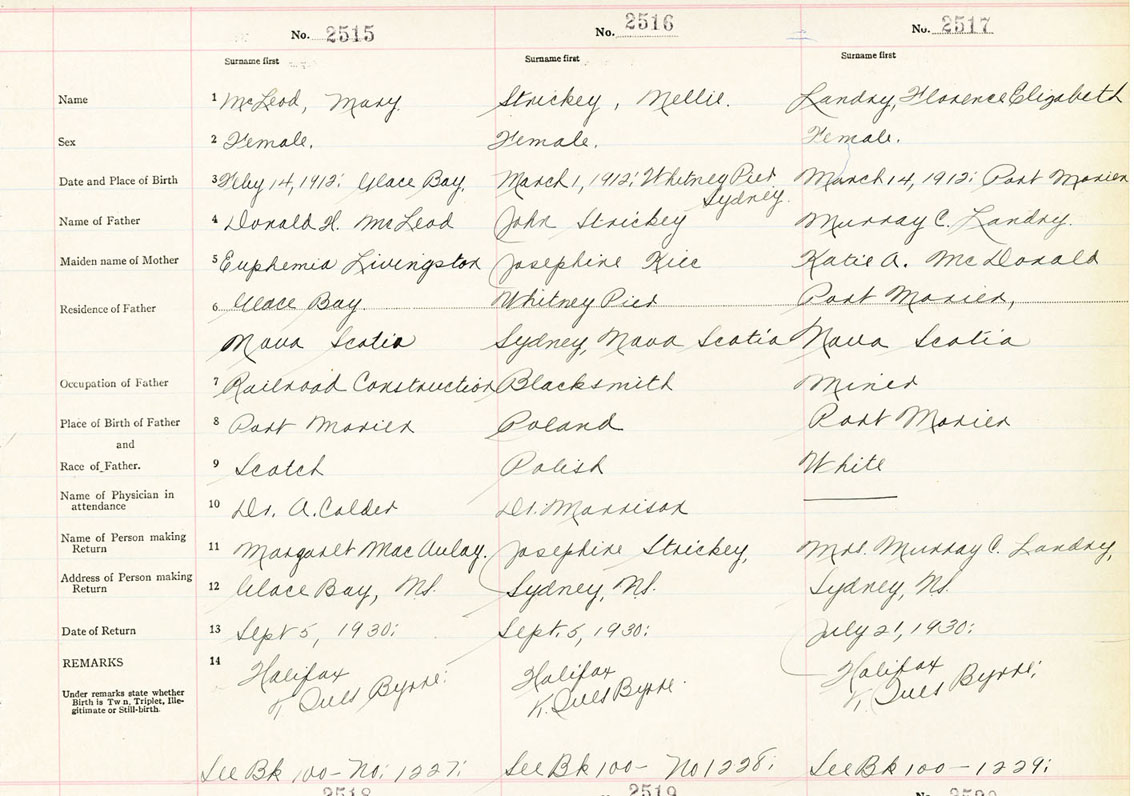 No. 2515 No. 2516 No. 2517
Surname first Surname first Surname first
Name 1 McLeod, Mary. Strickey, Nellie. Landry, Florence Elizabeth
Sex 2 Female. Female. Female.
Date and Place of Birth 3 Feby 14, 1912; Glace Bay. March 1, 1912; Whitney Pier March 14, 1912; Port Morien
Sydney.
Name of Father 4 Donald H. McLeod John Strickey Murray C. Landry.
Maiden name of Mother 5 Euphemia Livingston Josephine Katie A. McDonald
Residence of Father 6 Glace Bay. Whitney Pier Port Morien,
Nova Scotia Sydney, Nova Scotia Nova Scotia
Occupation of Father 7 Railroad Construction Blacksmith Miner
Place of Birth of Father 8 Port Morien Poland Port Morien
and
Race of Father. 9 Scotch Polish White
Name of Physician in
attendance 10 Dr. A. Calder Dr. Morrison
Name of Person making
Return 11 Margaret MacAulay. Josephine Strickey, Mrs. Murray C. Landry,
Address of Person making
Return 12 Glace Bay, N.S. Sydney, N.S. Sydney, N.S.
Date of Return 13 Sept 5, 1930; Sept. 5, 1930; July 21, 1930;
REMARKS 14 Halifax Halifax Halifax
Byrne. Byrne. Byrne;
Under remarks state whether
Birth is Twn, Triplet, Ille-
gitimate or Still-birth.
See Bk 100- No; 1227; See Bk 100- No 1228; See Bk 100- 1229;
2518 2519